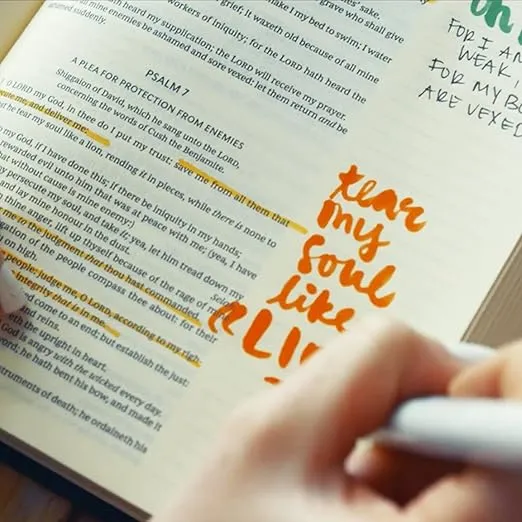 sake.
grief; it waxeth old because of all mine
workers of iniquity; for the LORD hath heard the
hath heard my supplication; the LORD will receive my prayer.
mine enemies be ashamed and sore vexed: let them return and be
ashamed suddenly.
PSALM 7
A PLEA FOR PROTECTION FROM ENEMIES
Shiggaion of David, which he sang unto the LORD,
concerning the words of Cush the Benjamite.
O LORD my God, in thee do I put my trust: save me from all them that
me, and deliver me:
he tear my soul like a lion, rending it in pieces, while there is none to
my God, if I have done this; if there be iniquity in my hands;
rewarded evil unto him that was at peace with me; (yea, I have
that without cause is mine enemy:)
persecute my soul, and take it; yea, let him tread down my
and lay mine honour in the dust.
mine anger, lift up thyself because of the rage of
to the judgment that thou hast commanded.
gation of the people compass thee about: for their
on high.
people: judge me, O LORD, according to my
integrity that is in me.
come to an end; but establish the just:
and reins.
the upright in heart.
God is angry with the wicked every day.
he hath bent his bow, and made it
instruments of death; he ordaineth his
FOR I AM
WEAK
FOR MY
ARE VEXED
tear
my
soul
like
a